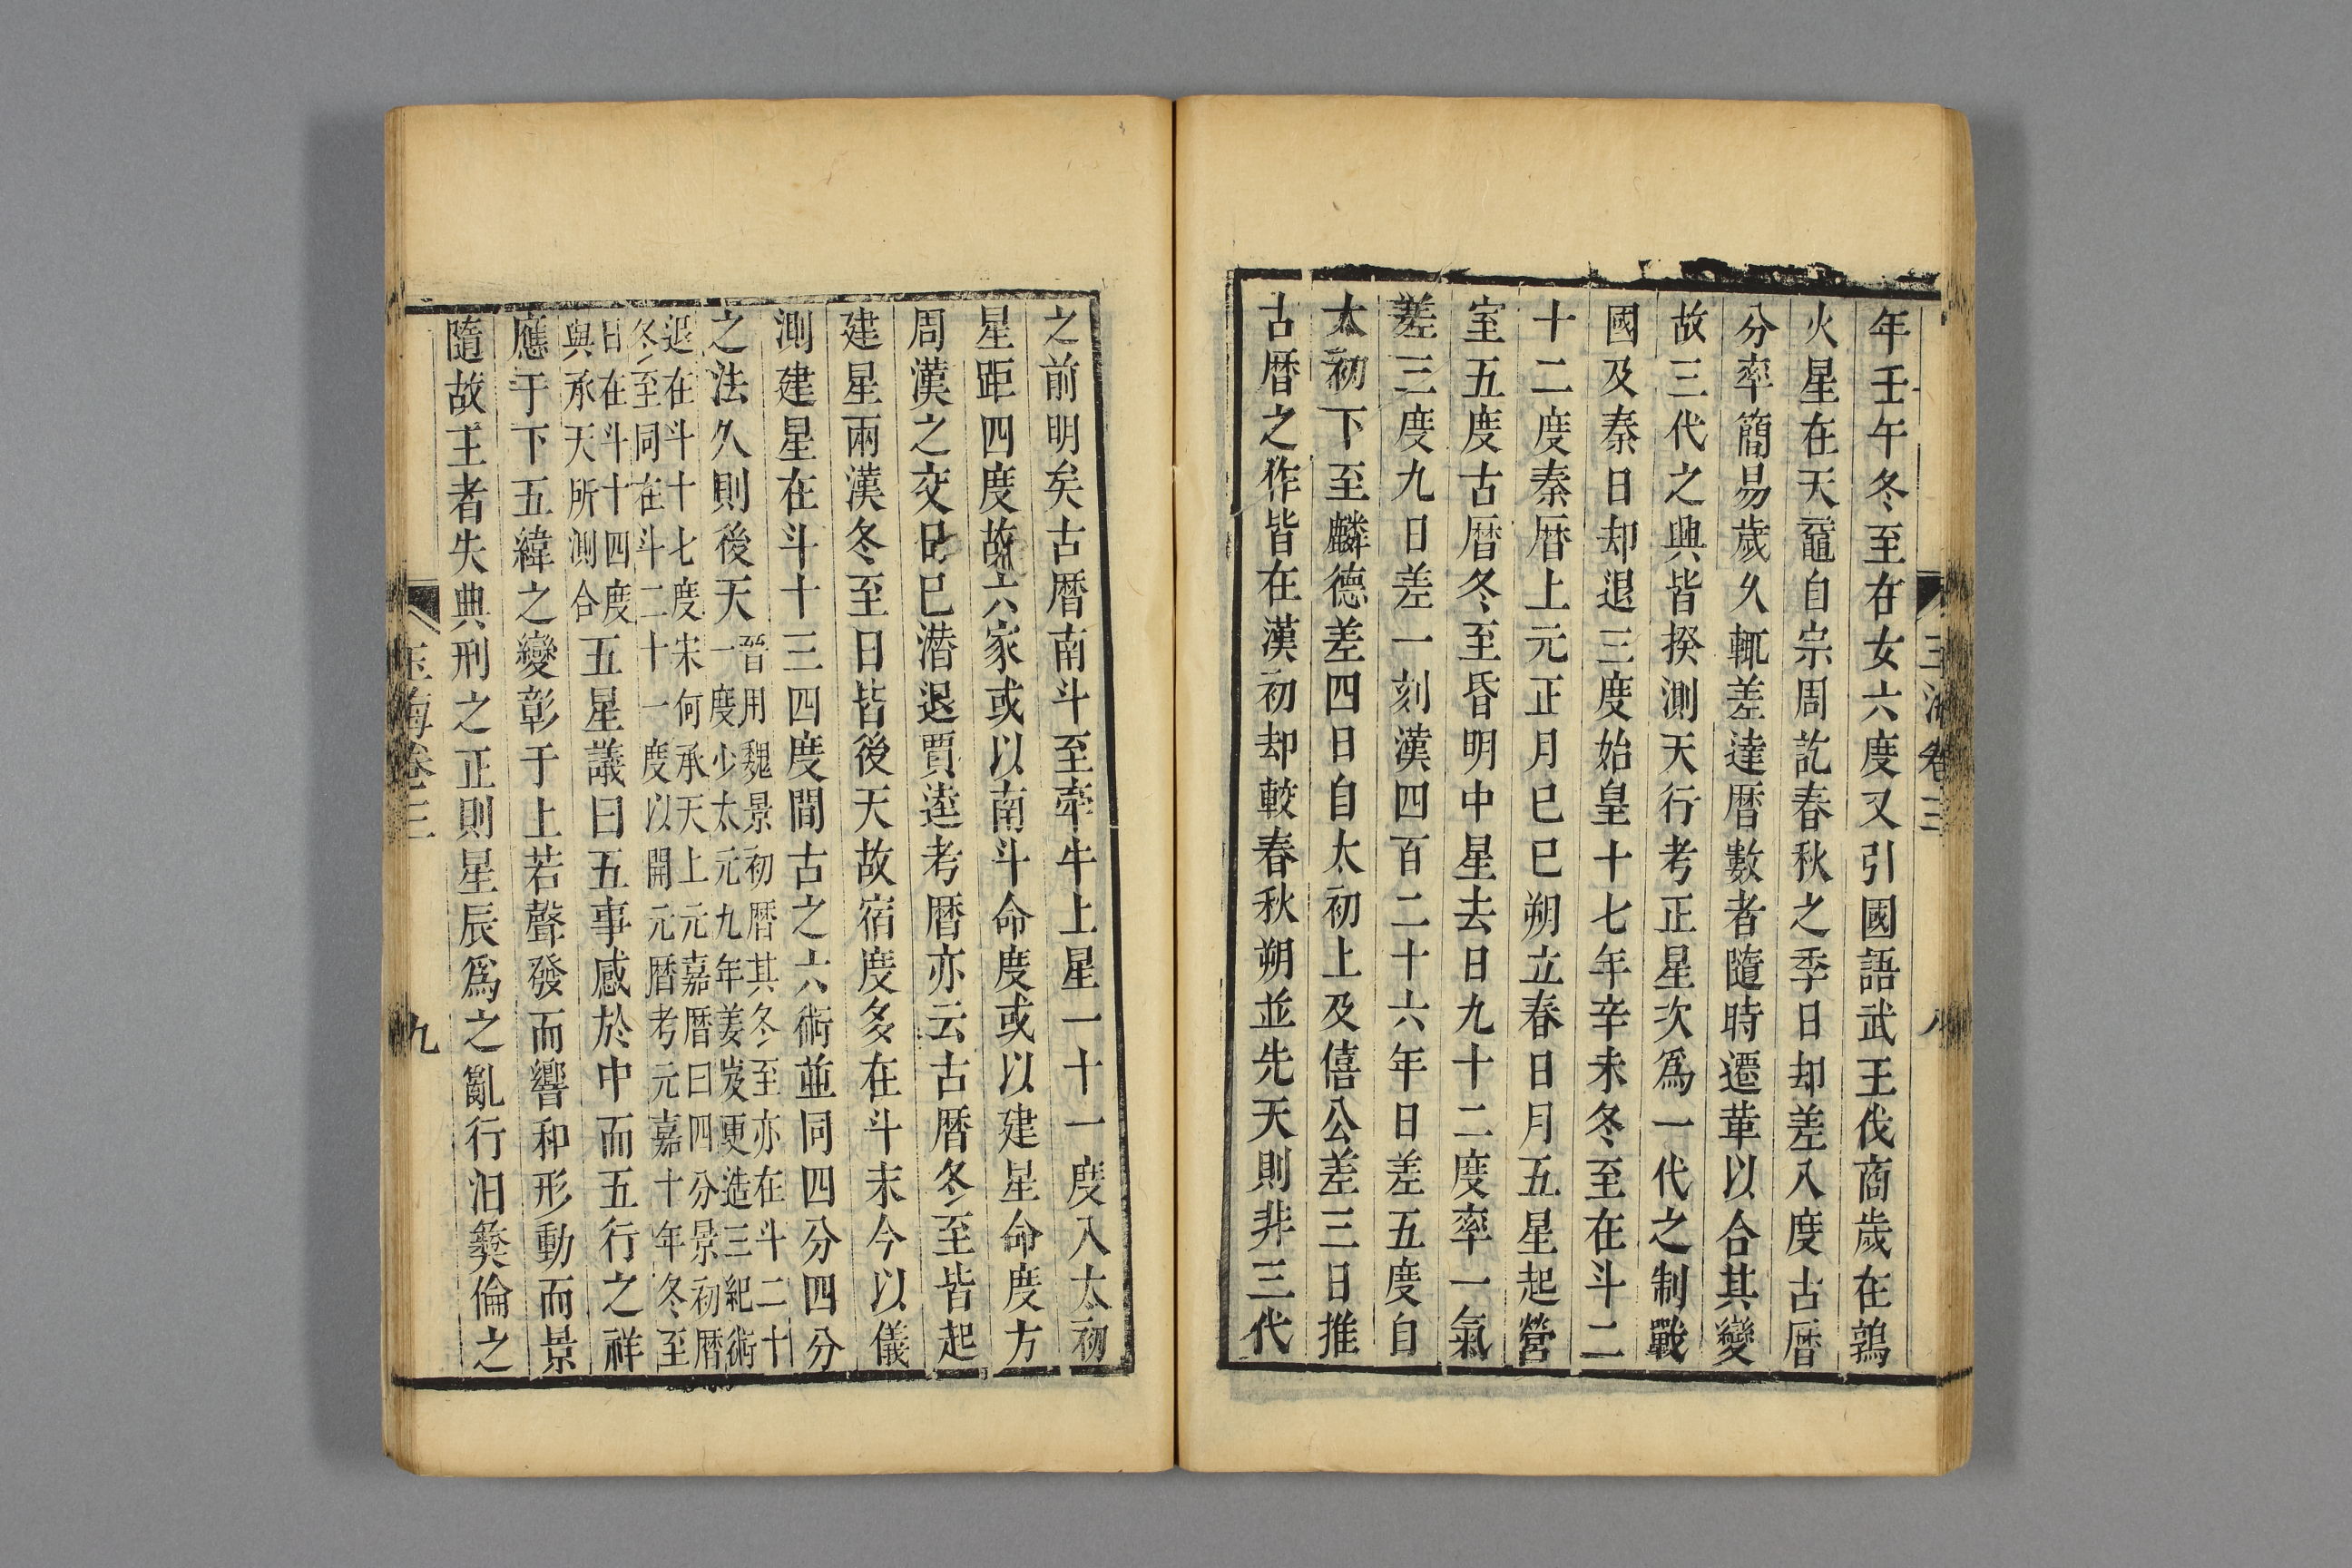 玉海卷三
八
年壬午冬至在女六度又引國語武王伐商歲在鶉
火星在天黿自宗周訖春秋之季日却差八度古曆
分率簡易歲久輒差達曆數者隨時遷革以合其變
故三代之興皆揆測天行考正星次爲一代之制戰
國及秦日却退三度始皇十七年辛未冬至在斗二
十二度秦曆上元正月己巳朔立春日月五星起營
室五度古曆冬至昏明中星去日九十二度率一氣
差三度九日差一刻漢四百二十六年日差五度自
太初下至麟德差四日自太初上及僖公差三日推
古曆之作皆在漢初却較春秋朔並先天則非三代
之前明矣古曆南斗至牽牛上星一十一度入太初
星距四度故六家或以南斗命度或以建星命度方
周漢之交日已潛退賈逵考曆亦云古曆冬至皆起
建星兩漢冬至日皆後天故宿度多在斗末今以儀
測建星在斗十三四度間古之六術並同四分四分
之法久則後天
晉用魏景初曆其冬至亦在斗二十
一度少太元九年姜岌更造三紀術
退在斗十七度宋何承天上元嘉曆曰四分景初曆
冬至同在斗二十一度以開元曆考元嘉十年冬至
日在斗十四度
與承天所測合
五星議曰五事感於中而五行之祥
應于下五緯之變彰于上若聲發而響和形動而景
隨故王者失典刑之正則星辰爲之亂行汨彝倫之
玉海卷三
九